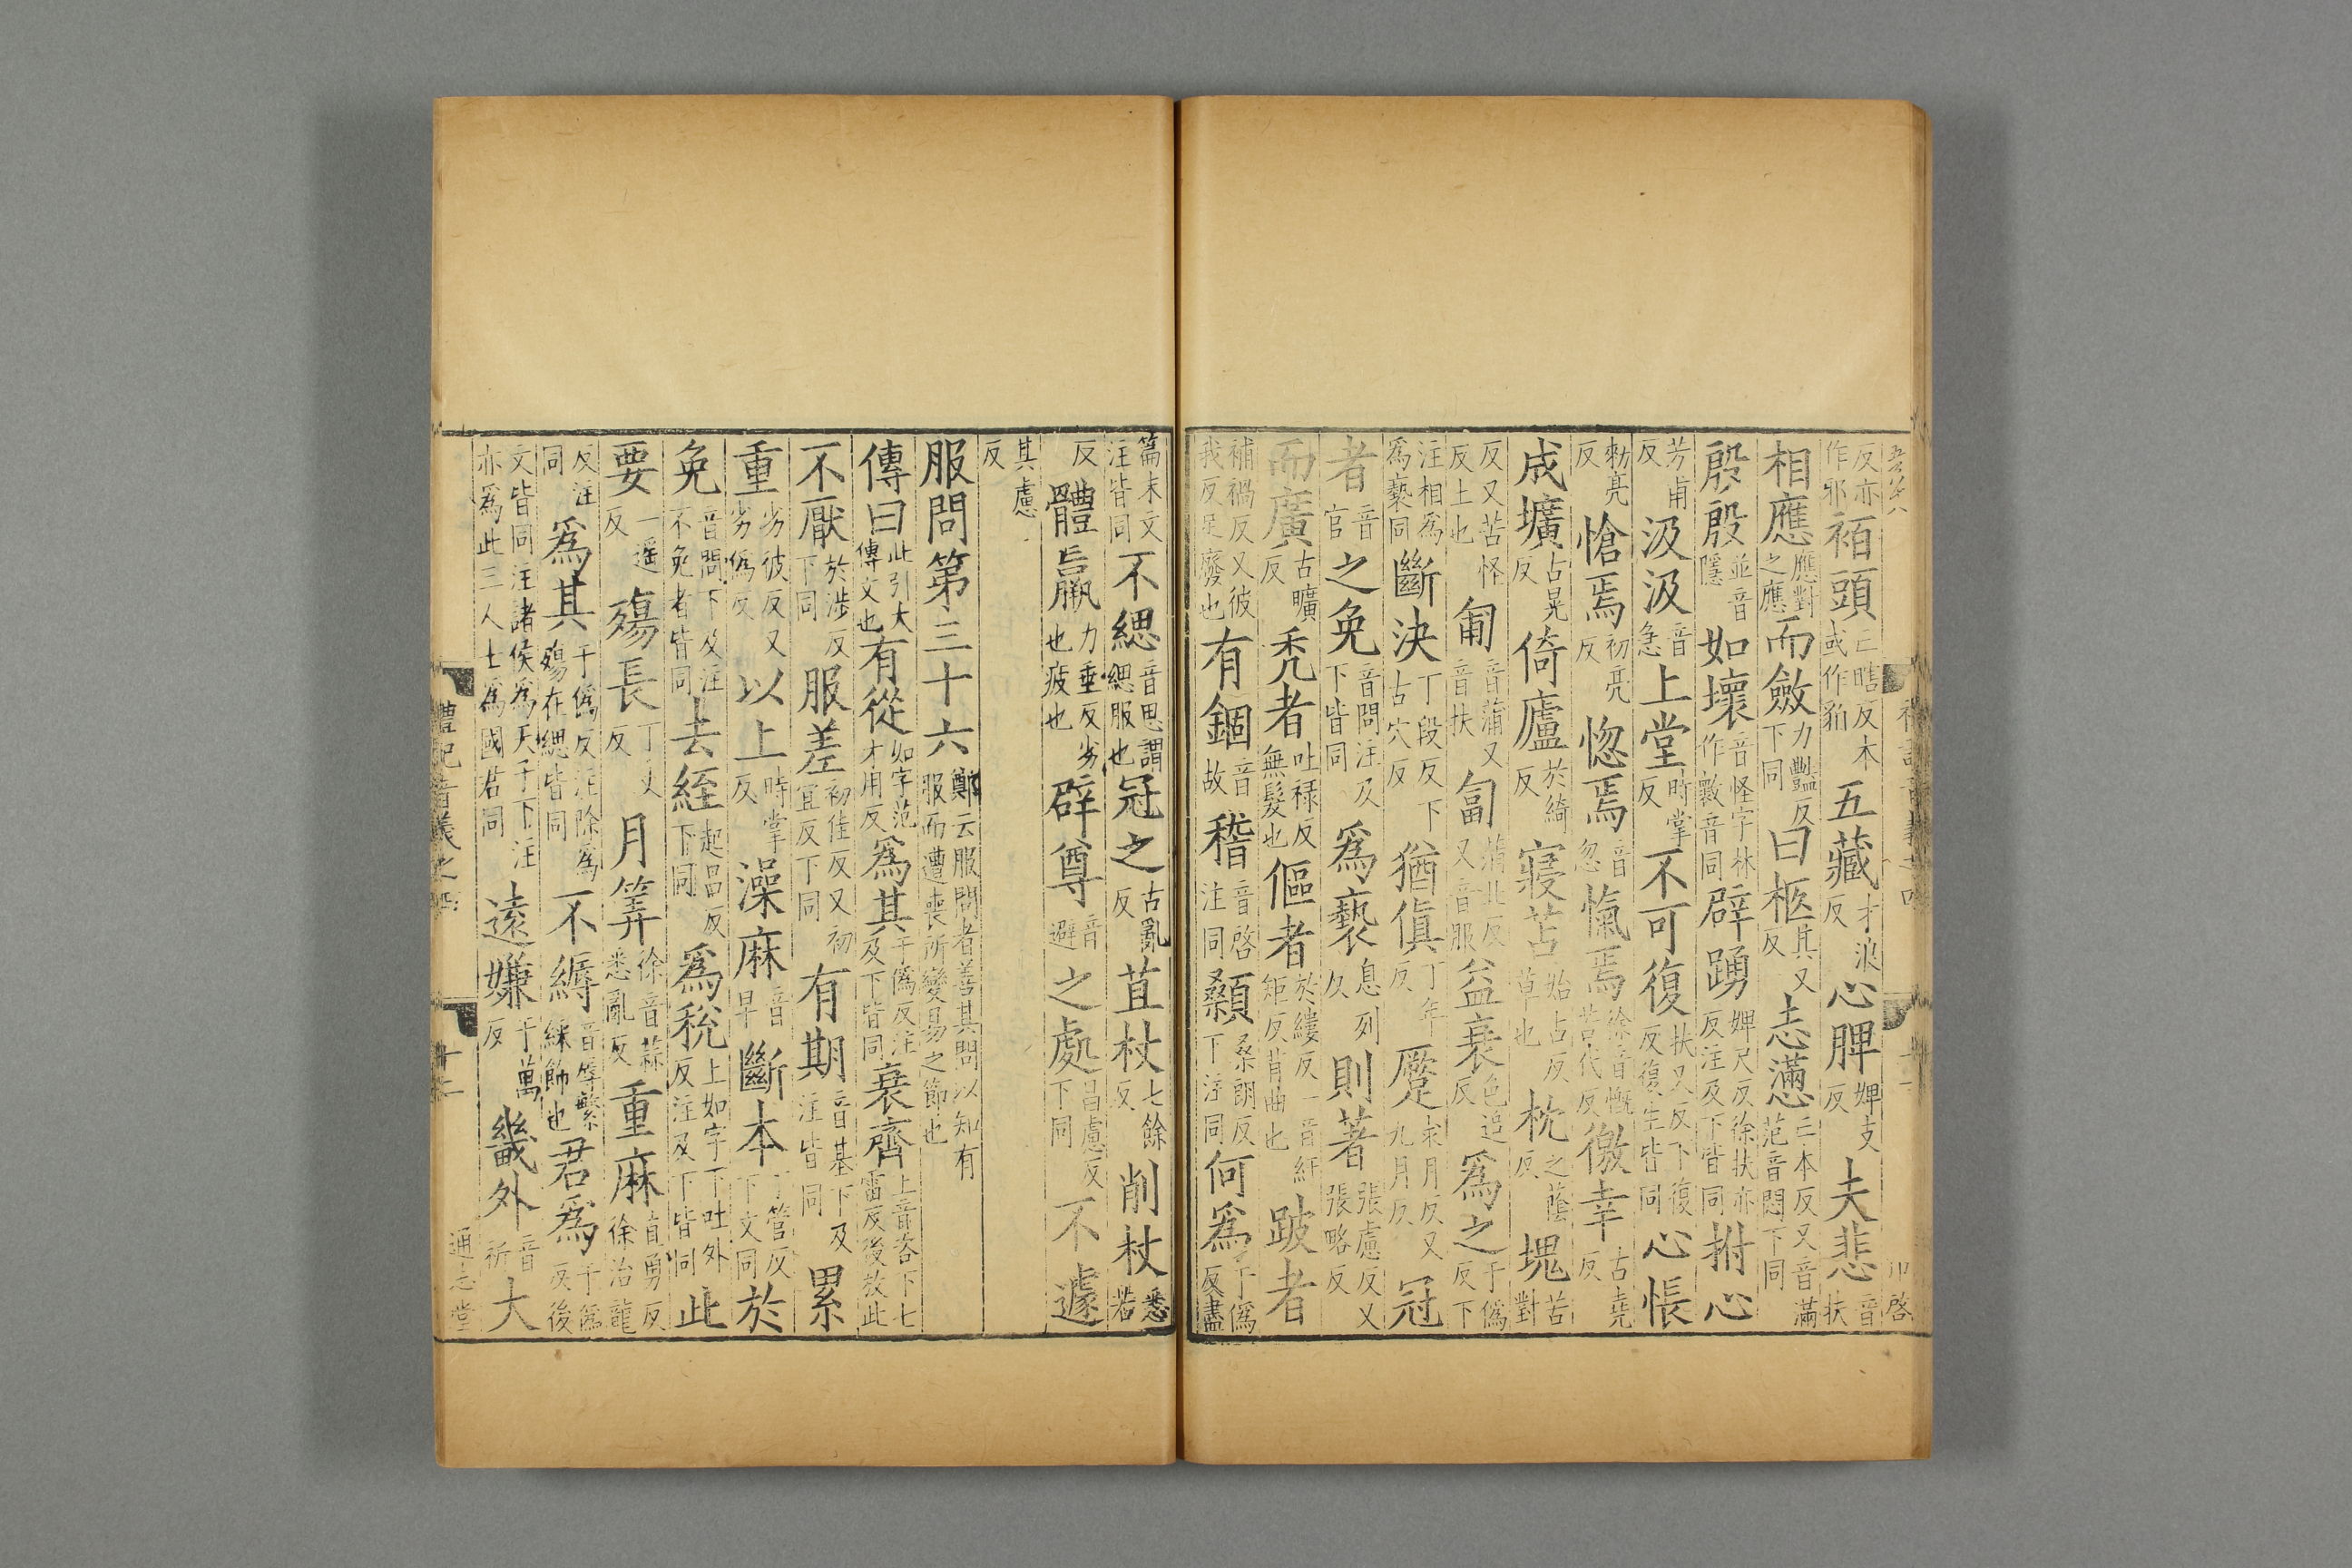 反亦作邪袹頭亡瞎反本或作貊五藏才浪反心脾婢支反夫悲音扶
相應應對之應而斂力豔反下同曰柩其又反志懣亡本反又音滿范音悶下同
殷殷並音隱如壞音怪字林作㱮音同辟踊婢尺反徐扶亦反注及下皆同拊心
芳甫反汲汲音急上堂時掌反不可復扶又反下復反復生皆同心悵
勑亮反愴焉初亮反惚焉音忽愾焉徐音慨苦代反徼幸古堯反
成壙古晃反倚廬於綺反寢苫始占反草也枕之蔭反塊苦對
反又苦怪反土也匍音蒲又音扶匐蒲北反又音服益衰色追反爲之于僞反下
注相爲爲褻同斷決丁段反下古穴反猶傎丁年反蹷求月反又九月反冠
者音官之免音問注及下皆同爲褻息列久則著張慮反又張略反
而廣古曠反禿者吐禄反無髮也傴者於縷反一音紆矩反背曲也跛者
補禍反又彼我反足廢也有錮音故稽音啓注同顙桑朗反下注同何爲于僞反盡
篇末文注皆同不緦音思謂緦服也冠之古亂反苴杖七餘反削杖悉若
反體羸力垂反劣也疲也辟尊音避之處昌慮反下同不遽
其慮反
服問第三十六鄭云服問者善其問以知有服而遭喪所變易之節也
傳曰此引大傳文也有從如字范才用反爲其于僞反注及下皆同衰齊上音咨下七雷反後放此
不厭於涉反下同服差初佳反又初宜反下同有期音基下及注皆同累
重劣彼反又劣僞反以上時掌反澡麻音早斷本丁管反下文同於
免音問下及注不免者皆同去絰起呂反下同爲稅上如字下吐外反注及下皆同此
要一遥反殤長丁丈反月筭徐音蒜悉亂反重麻直勇反徐治龍
反注同爲其于僞反注除爲殤在緦皆同不縟音辱繁綵飾也君爲于僞反後
文皆同注諸侯爲天子下注亦爲此三人士爲國君同遠嫌于萬反畿外音祈大
禮記音義之四 十二 通志堂